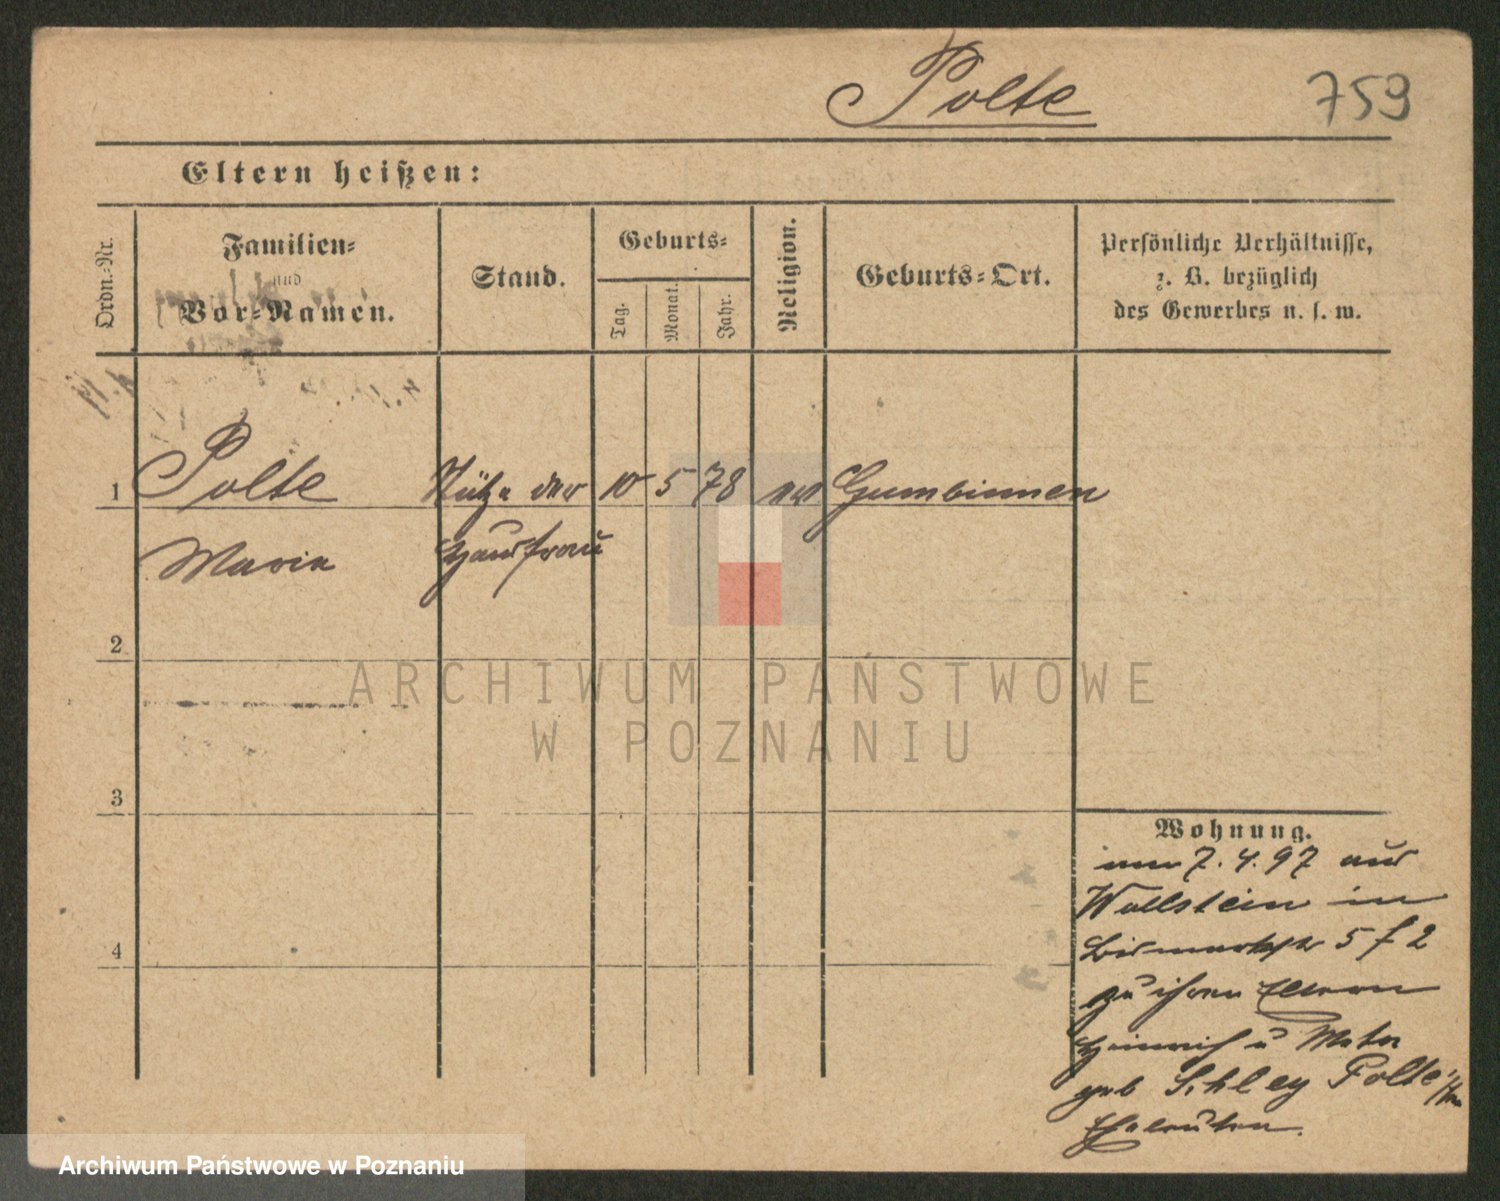 Polte
759
Eltern heißen:
Ordn.-Nr.
Familien-
und
Vor-Namen.
Stand.
Geburts-
Tag.
Monat.
Jahr.
Religion.
Geburts-Ort.
Persönliche Verhältnisse,
z. B. bezüglich
des Gewerbes u. s. w.
1 Polte Stütze der 10 5 78 ev Gumbinnen
Maria Hausfrau
2
3
4
Wohnung.
am 7. 4. 97 aus
Wollstein in
Bismarckstr 5 f 2
zu ihren Eltern
Heinrich u Meta
geb Schley Polte
Eheleuten.
ARCHIWUM PAŃSTWOWE
W POZNANIU
Archiwum Państwowe w Poznaniu